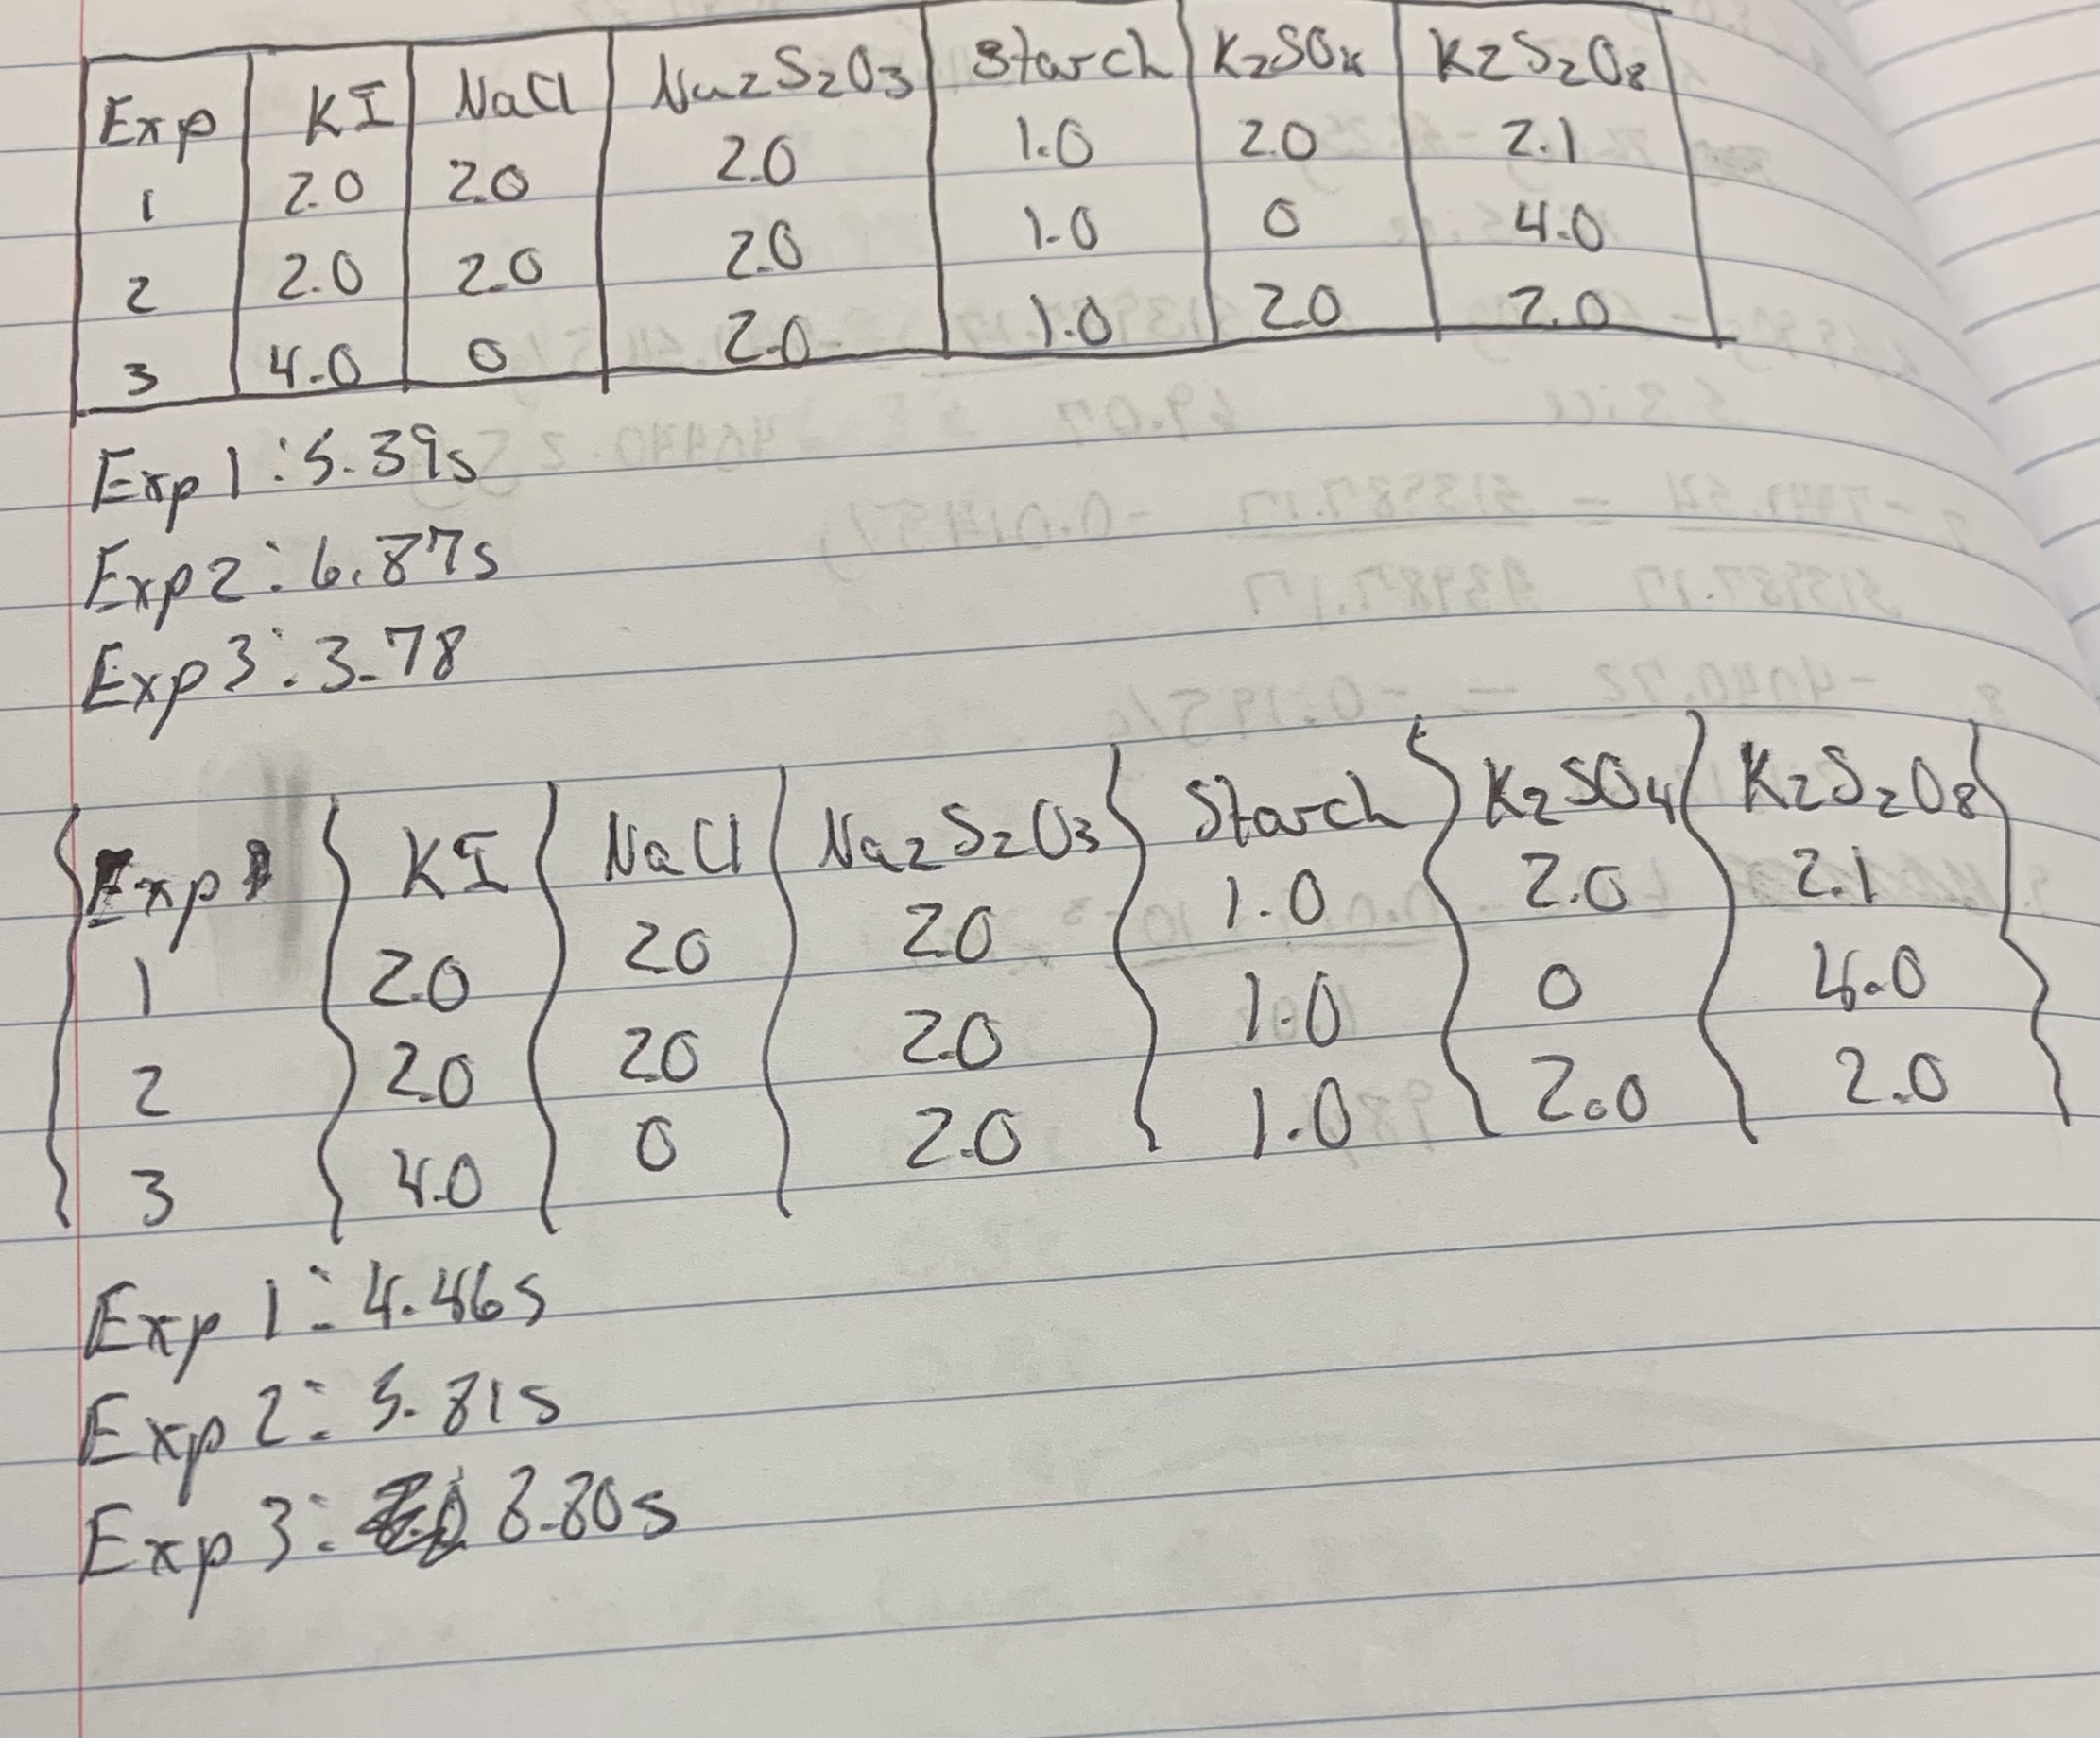 Exp KI NaCl Na2S2O3 Starch K2SO4 K2S2O8
1 2.0 2.0 2.0 1.0 2.0 2.1
2 2.0 2.0 2.0 1.0 0 4.0
3 4.0 0 2.0 1.0 2.0 2.0
Exp 1: 5.39s
Exp 2: 6.87s
Exp 3: 3.78
Exp KI NaCl Na2S2O3 Starch K2SO4 K2S2O8
1 2.0 2.0 2.0 1.0 2.0 2.1
2 2.0 2.0 2.0 1.0 0 4.0
3 4.0 0 2.0 1.0 2.0 2.0
Exp 1: 4.46s
Exp 2: 5.81s
Exp 3: